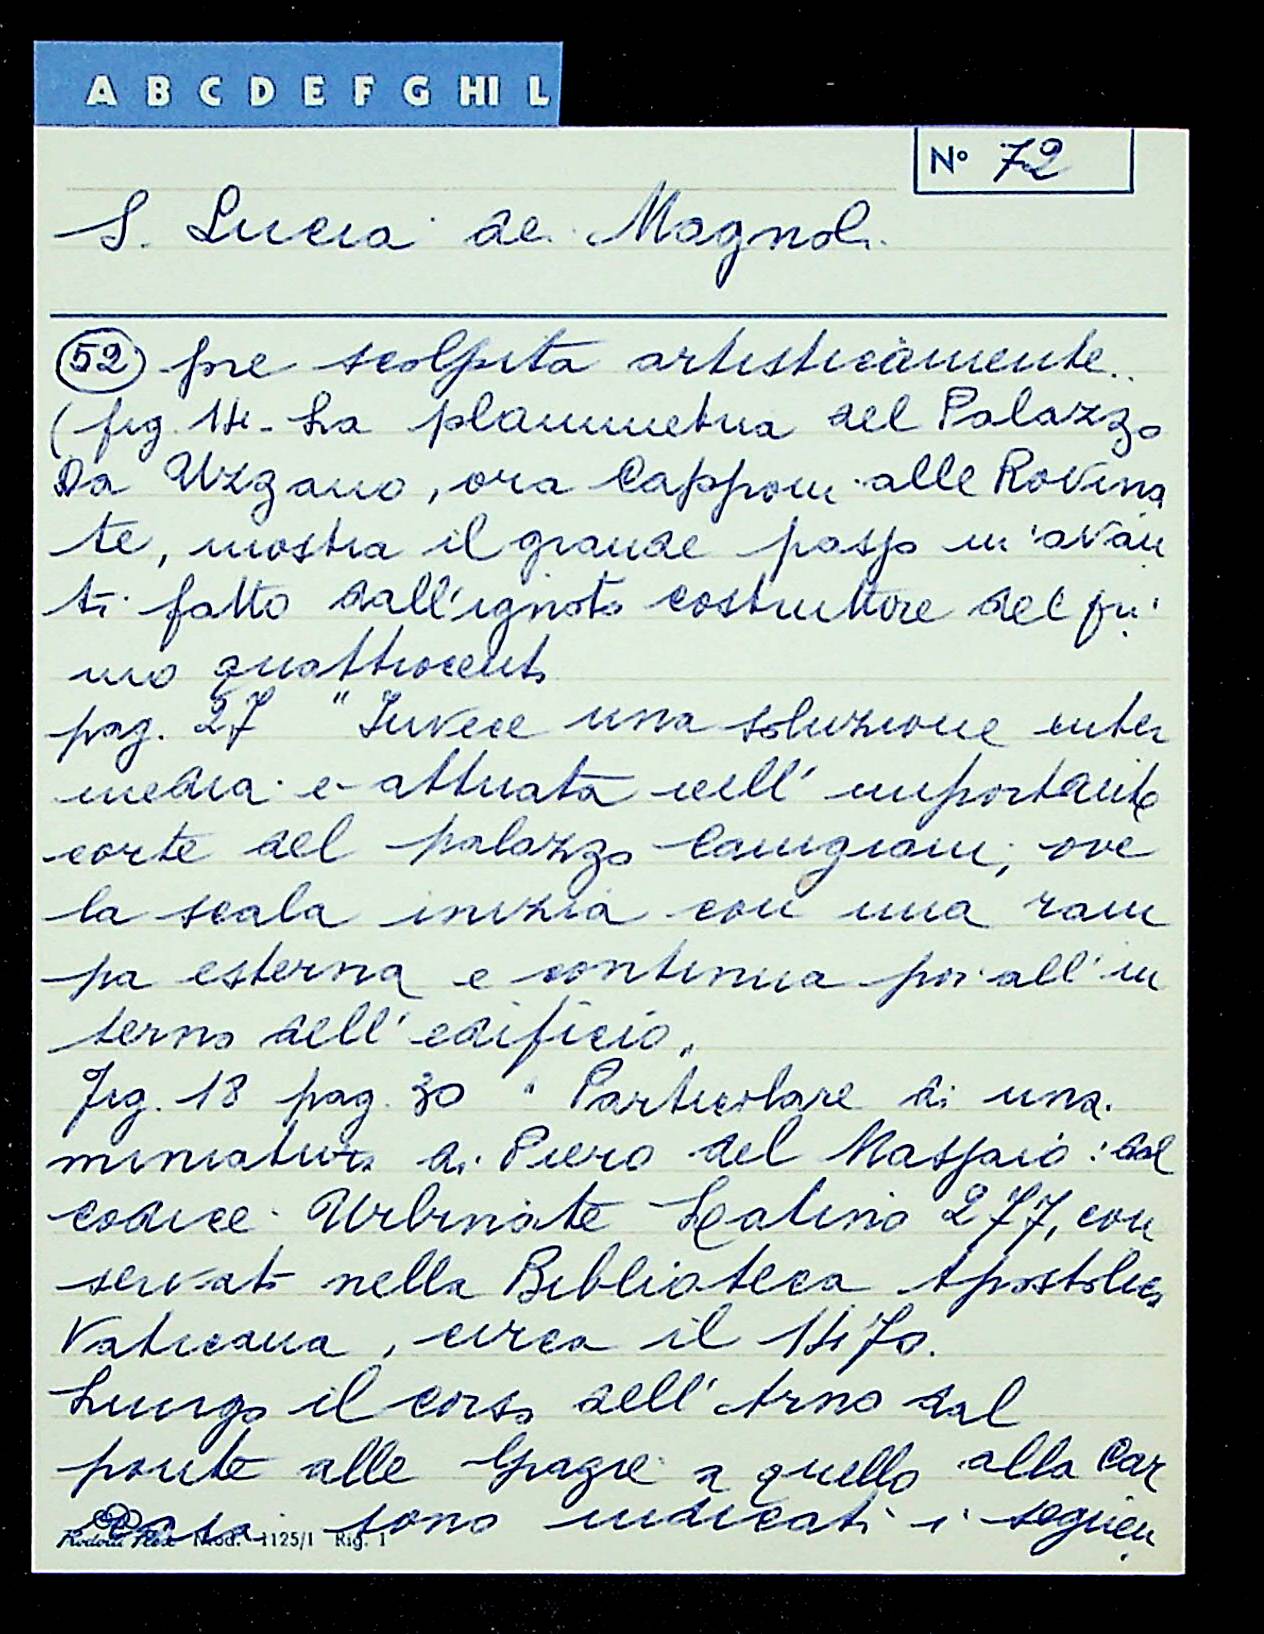 A B C D E F G HI L
N° 72
S. Lucia de Magnoli
52 pre scolpita artisticamente..
(fig. 14 - La planimetria del Palazzo
Da Uzzano, ora Capponi alle Rovina
te, mostra il grande passo in avan
ti fatto dall'ignoto costruttore del pri
mo quattrocento
pag. 27 " Invece una soluzione inter
media e attuata nell' importante
corte del palazzo Canigiani, ove
la scala inizia con una ram
pa esterna e continua poi all' in
terno dell' edificio"
Fig. 18 pag. 30 " Particolare di una
miniatura di Piero del Massaio: dal
codice Urbinate Latino 277, con
servato nella Biblioteca Apostolica
Vaticana, circa il 1470.
Lungo il corso dell' Arno dal
ponte alle Grazie a quello alla Car
sono indicati i seguen
Mod. 1125/1 Rig. 1